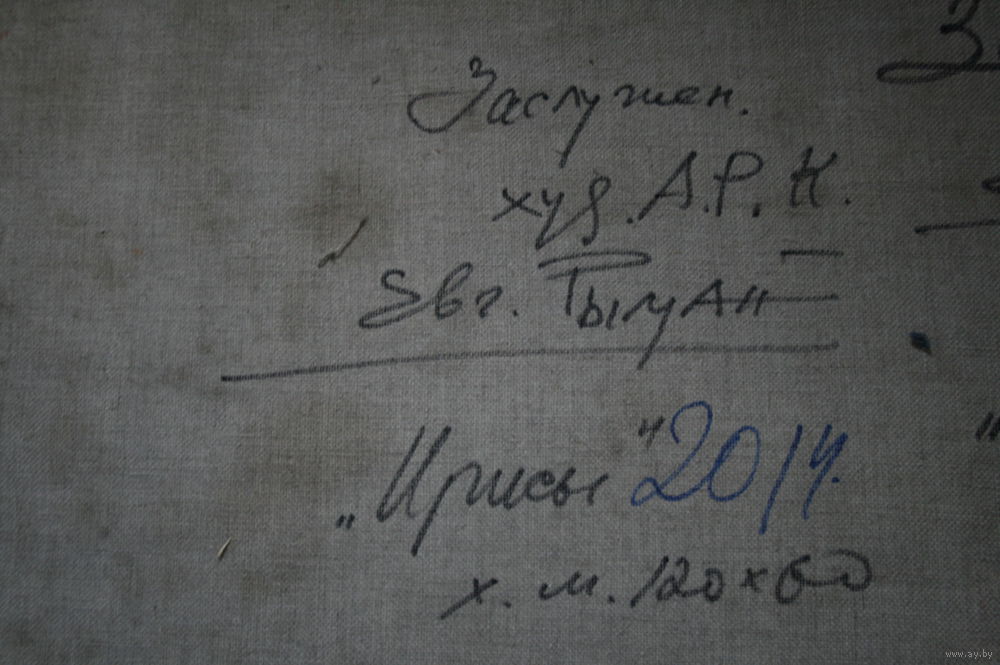 Заслужен.
худ. А.Р.К.
Евг.
„Ирисы" 2014.
х. м. 120х60
www.ay.by